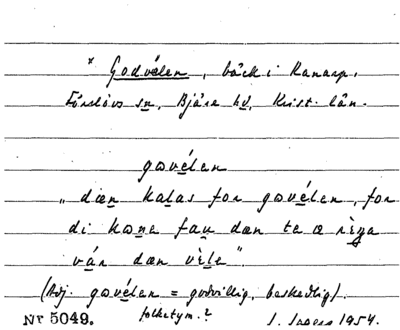 * Godvélen, bäck i Ranarp,
Förslövs sn, Bjäre hd, Krist. län.
gωvélen
"dæn kalas for gωvélen, for
di kωne fωu dæn ta ω rìŋa
vár dæn vìle".
(Adj. gωvélen = godvillig, beskedlig).
Nr 5049. folketym.? 1954.